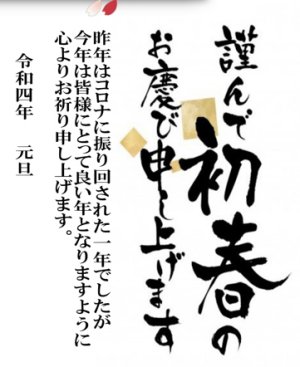 謹んで初春の
お慶び申し上げます
昨年はコロナに振り回された一年でしたが
今年は皆様にとって良い年となりますように
心よりお祈り申し上げます。
令和四年 元旦